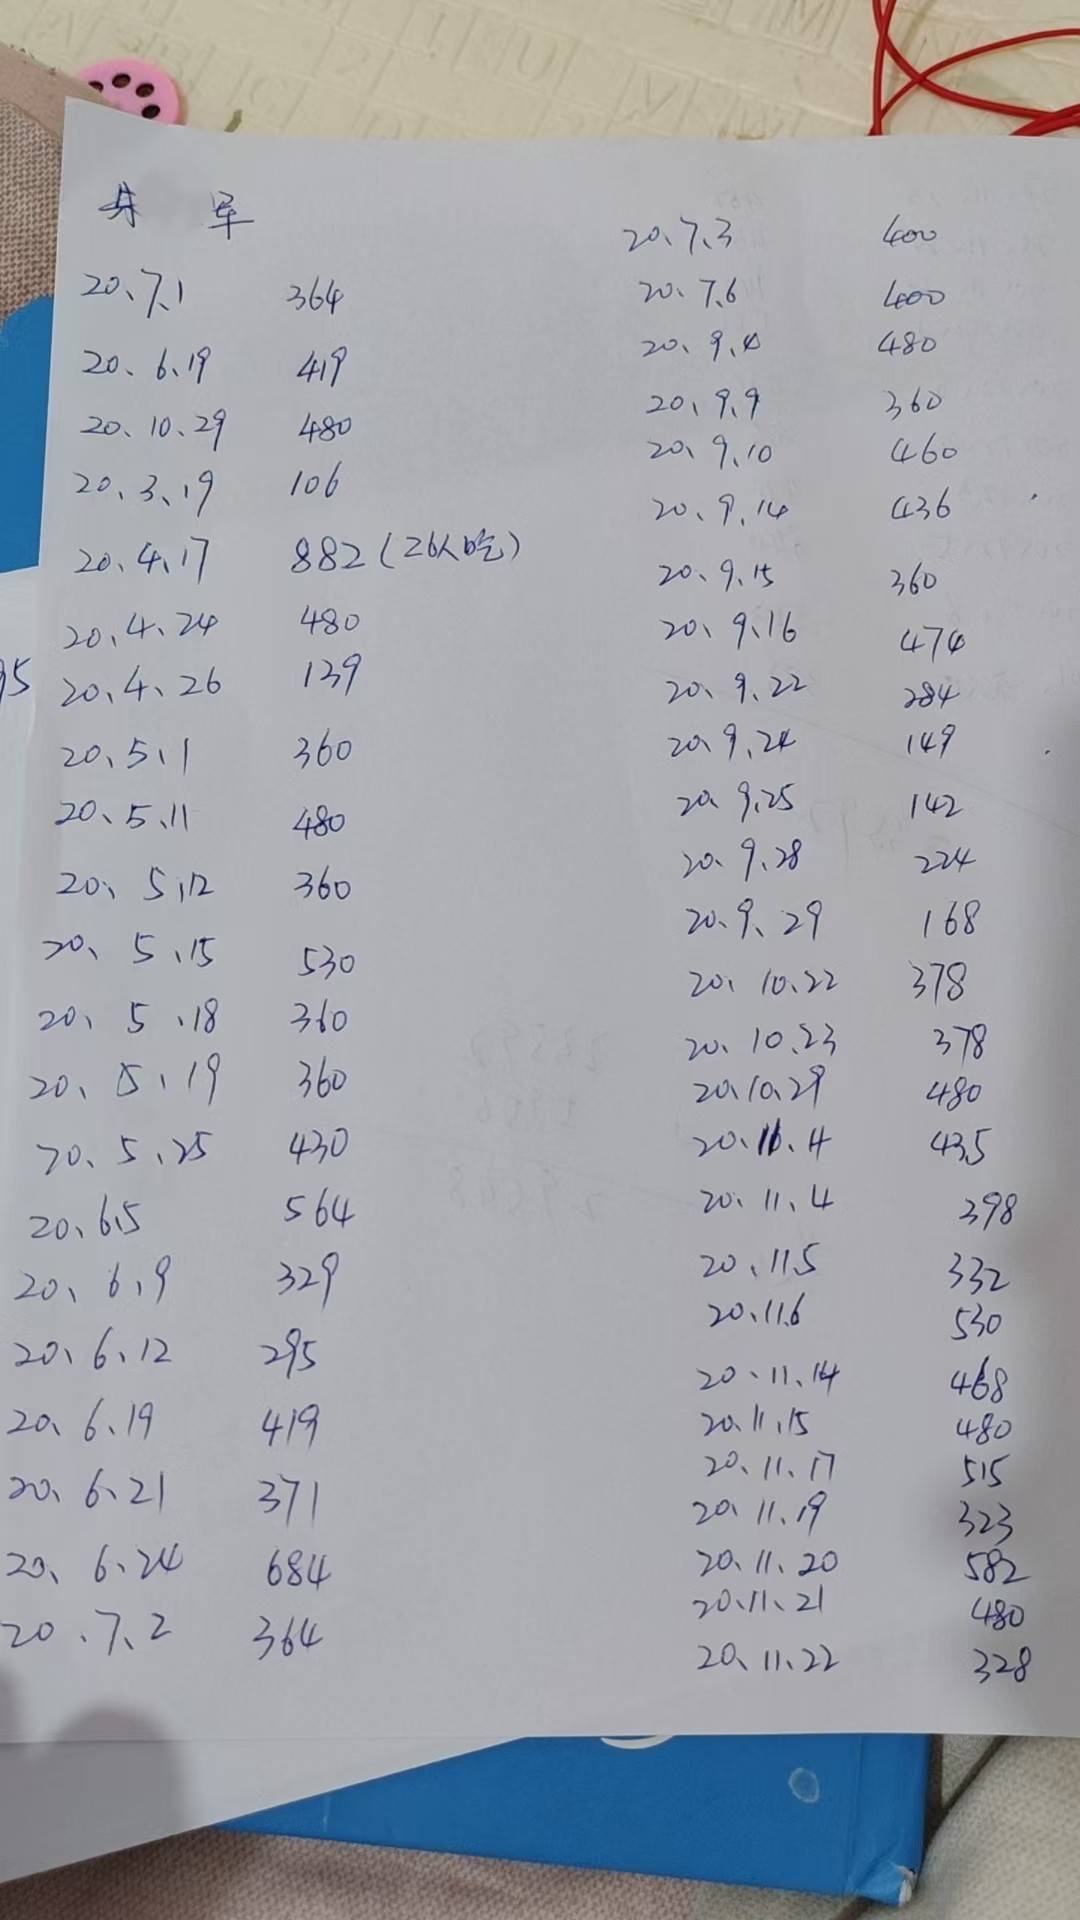 军
20、7、1 364
20、6、19 419
20、10、29 480
20、3、19 106
20、4、17 882（26人吃）
20、4、24 480
20、4、26 139
20、5、1 360
20、5、11 480
20、5、12 360
20、5、15 530
20、5、18 360
20、5、19 360
20、5、25 430
20、6、5 564
20、6、9 329
20、6、12 295
20、6、19 419
20、6、21 371
20、6、24 684
20、7、2 364
20、7、3 400
20、7、6 400
20、9、4 480
20、9、9 360
20、9、10 460
20、9、14 436
20、9、15 360
20、9、16 474
20、9、22 284
20、9、24 149
20、9、25 142
20、9、28 224
20、9、29 168
20、10、22 378
20、10、23 378
20、10、29 480
20、11、4 435
20、11、4 398
20、11、5 332
20、11、6 530
20、11、14 468
20、11、15 480
20、11、17 515
20、11、19 323
20、11、20 582
20、11、21 480
20、11、22 328